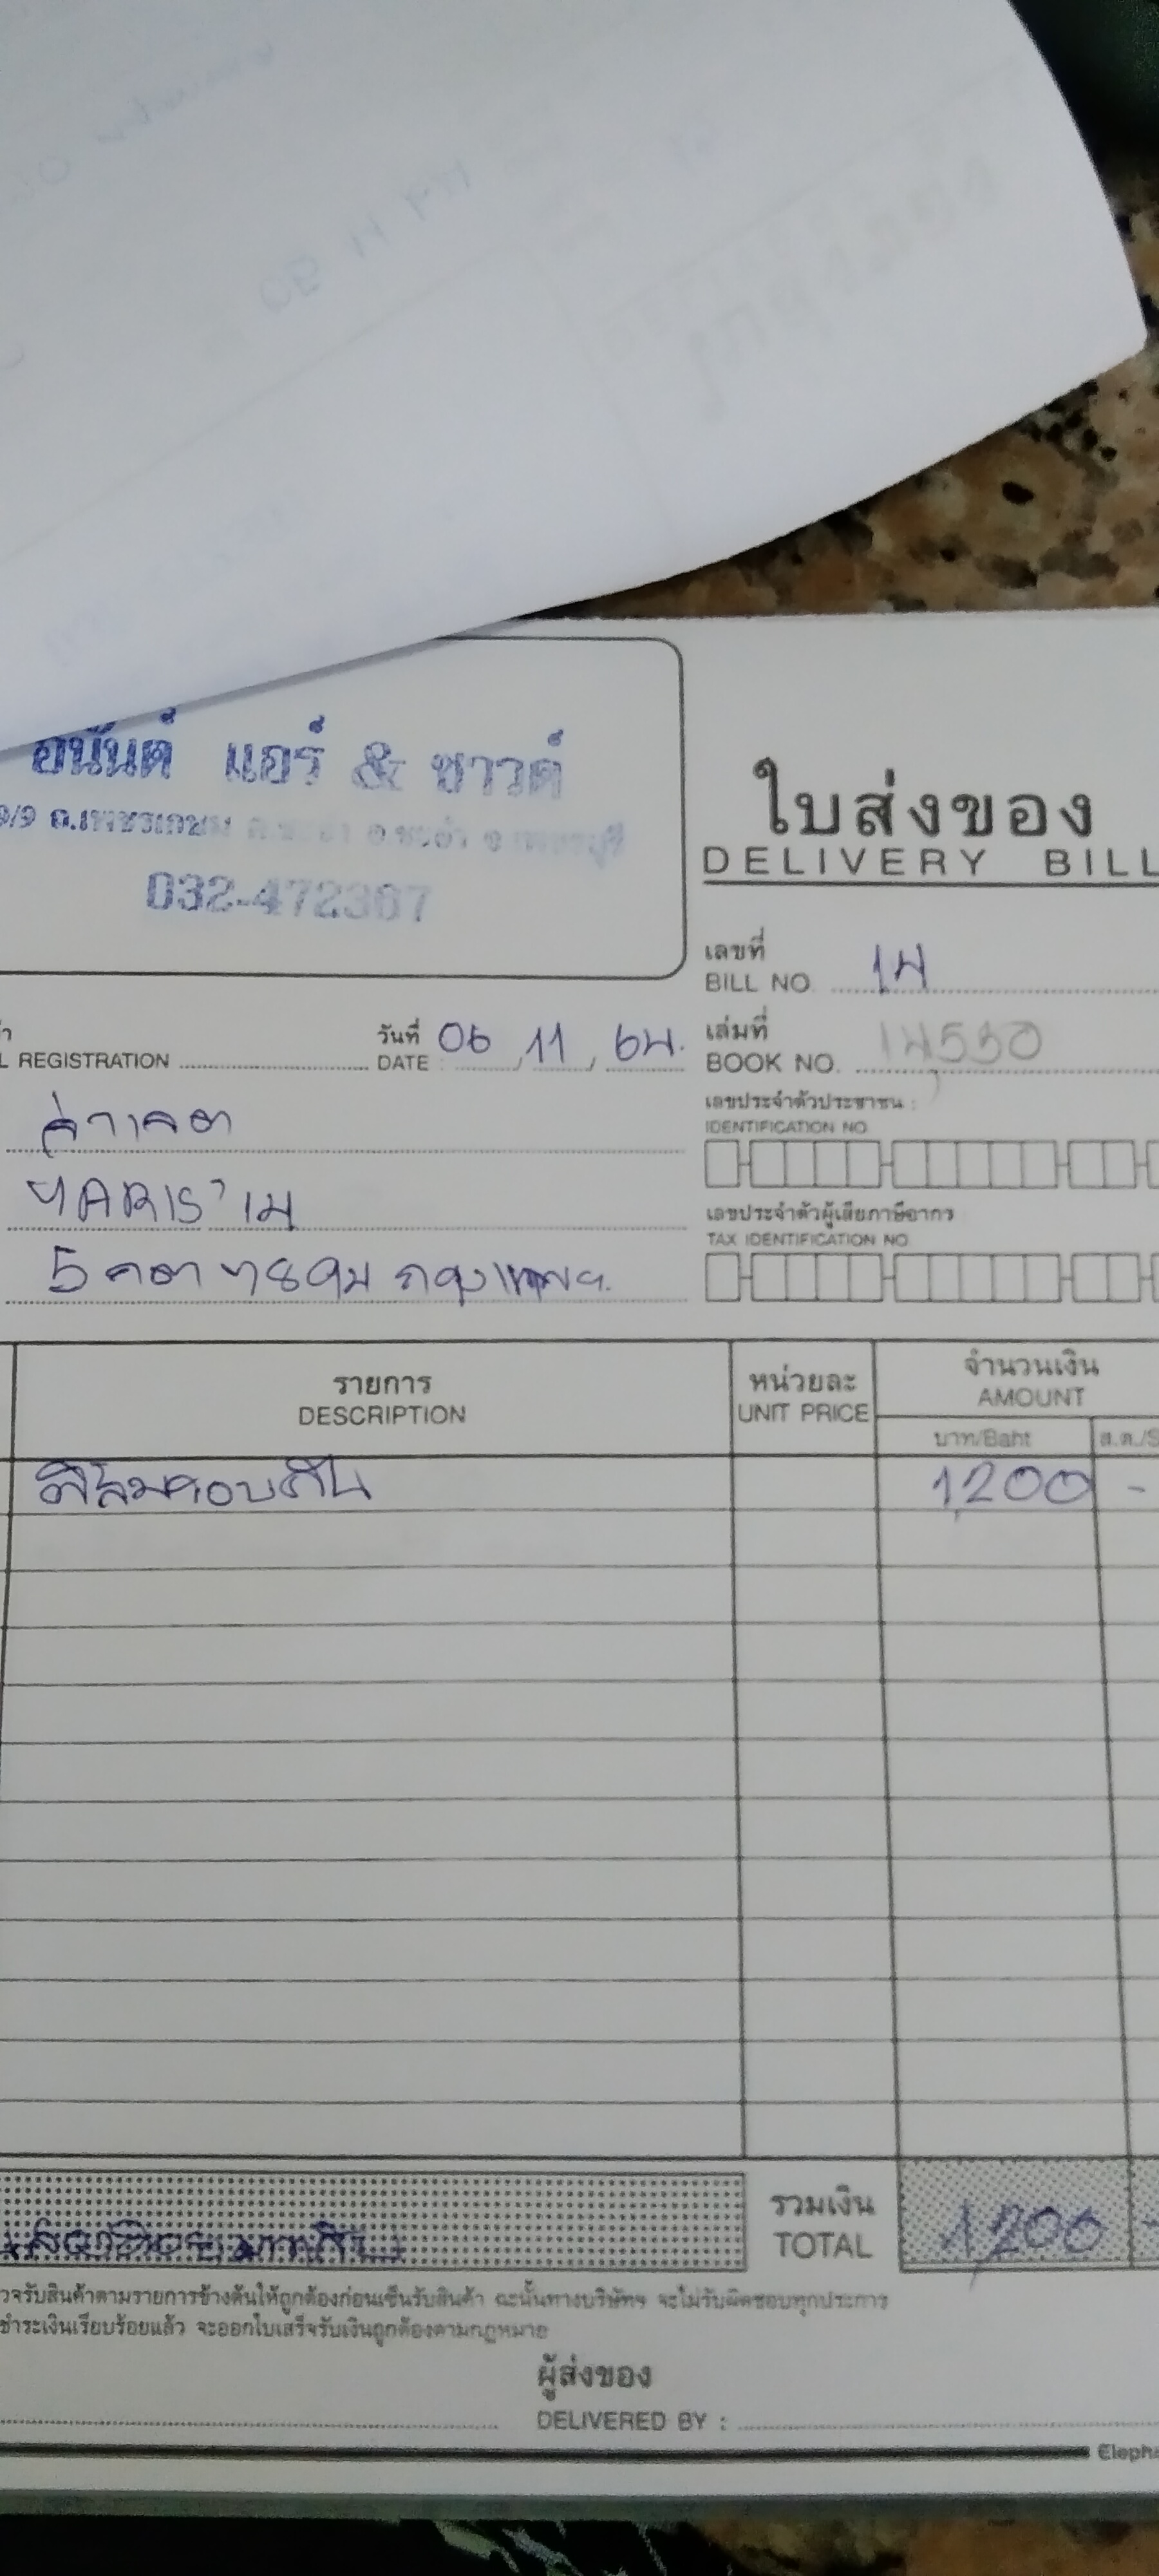 อนันต์ แอร์ & ซาวด์
9/9 ถ.เพชรเกษม ต.ชะอำ อ.ชะอำ จ.เพชรบุรี
032-472367
ใบส่งของ
DELIVERY BILL
เลขที่
BILL NO. 14
REGISTRATION
วันที่
DATE 06, 11, 64.
เล่มที่
BOOK NO. 14530
เลขประจำตัวประชาชน :
IDENTIFICATION NO
YARIS' 14
เลขประจำตัวผู้เสียภาษีอากร
TAX IDENTIFICATION NO
กรุงเทพฯ.
รายการ
DESCRIPTION
หน่วยละ
UNIT PRICE
จำนวนเงิน
AMOUNT
บาท/Baht
ส.ต./S
ฟิล์มรอบคัน 1,200 -
รวมเงิน
TOTAL 1,200 -
วจรับสินค้าตามรายการข้างต้นให้ถูกต้องก่อนเซ็นรับสินค้า ฉะนั้นทางบริษัทฯ จะไม่รับผิดชอบทุกประการ
ชำระเงินเรียบร้อยแล้ว จะออกใบเสร็จรับเงินถูกต้องตามกฎหมาย
ผู้ส่งของ
DELIVERED BY :
Eleph